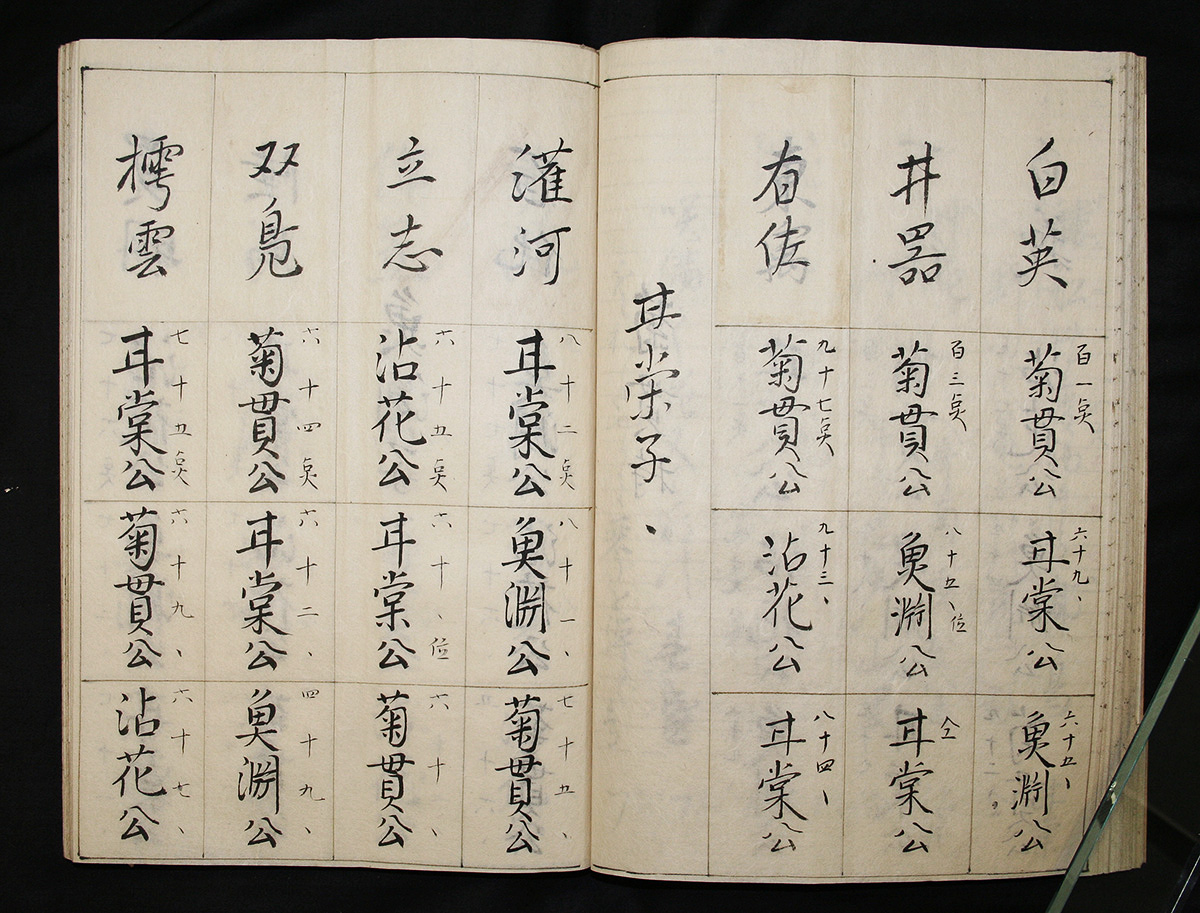 白英
百一点
菊貫公
六十九、
甘棠公
六十五、
魚淵公
井器
百三点
菊貫公
八十五、位
魚淵公
仝
甘棠公
有佐
九十七点
菊貫公
九十三、
沾花公
八十四、
甘棠公
甘棠子、
灌河
八十二点
甘棠公
八十一、
魚淵公
七十五、
菊貫公
立志
六十五点
沾花公
六十、位
甘棠公
六十、
菊貫公
双鳬
六十四点
菊貫公
六十二、
甘棠公
四十九、
魚淵公
樗雲
七十五点
甘棠公
六十九、
菊貫公
六十七、
沾花公